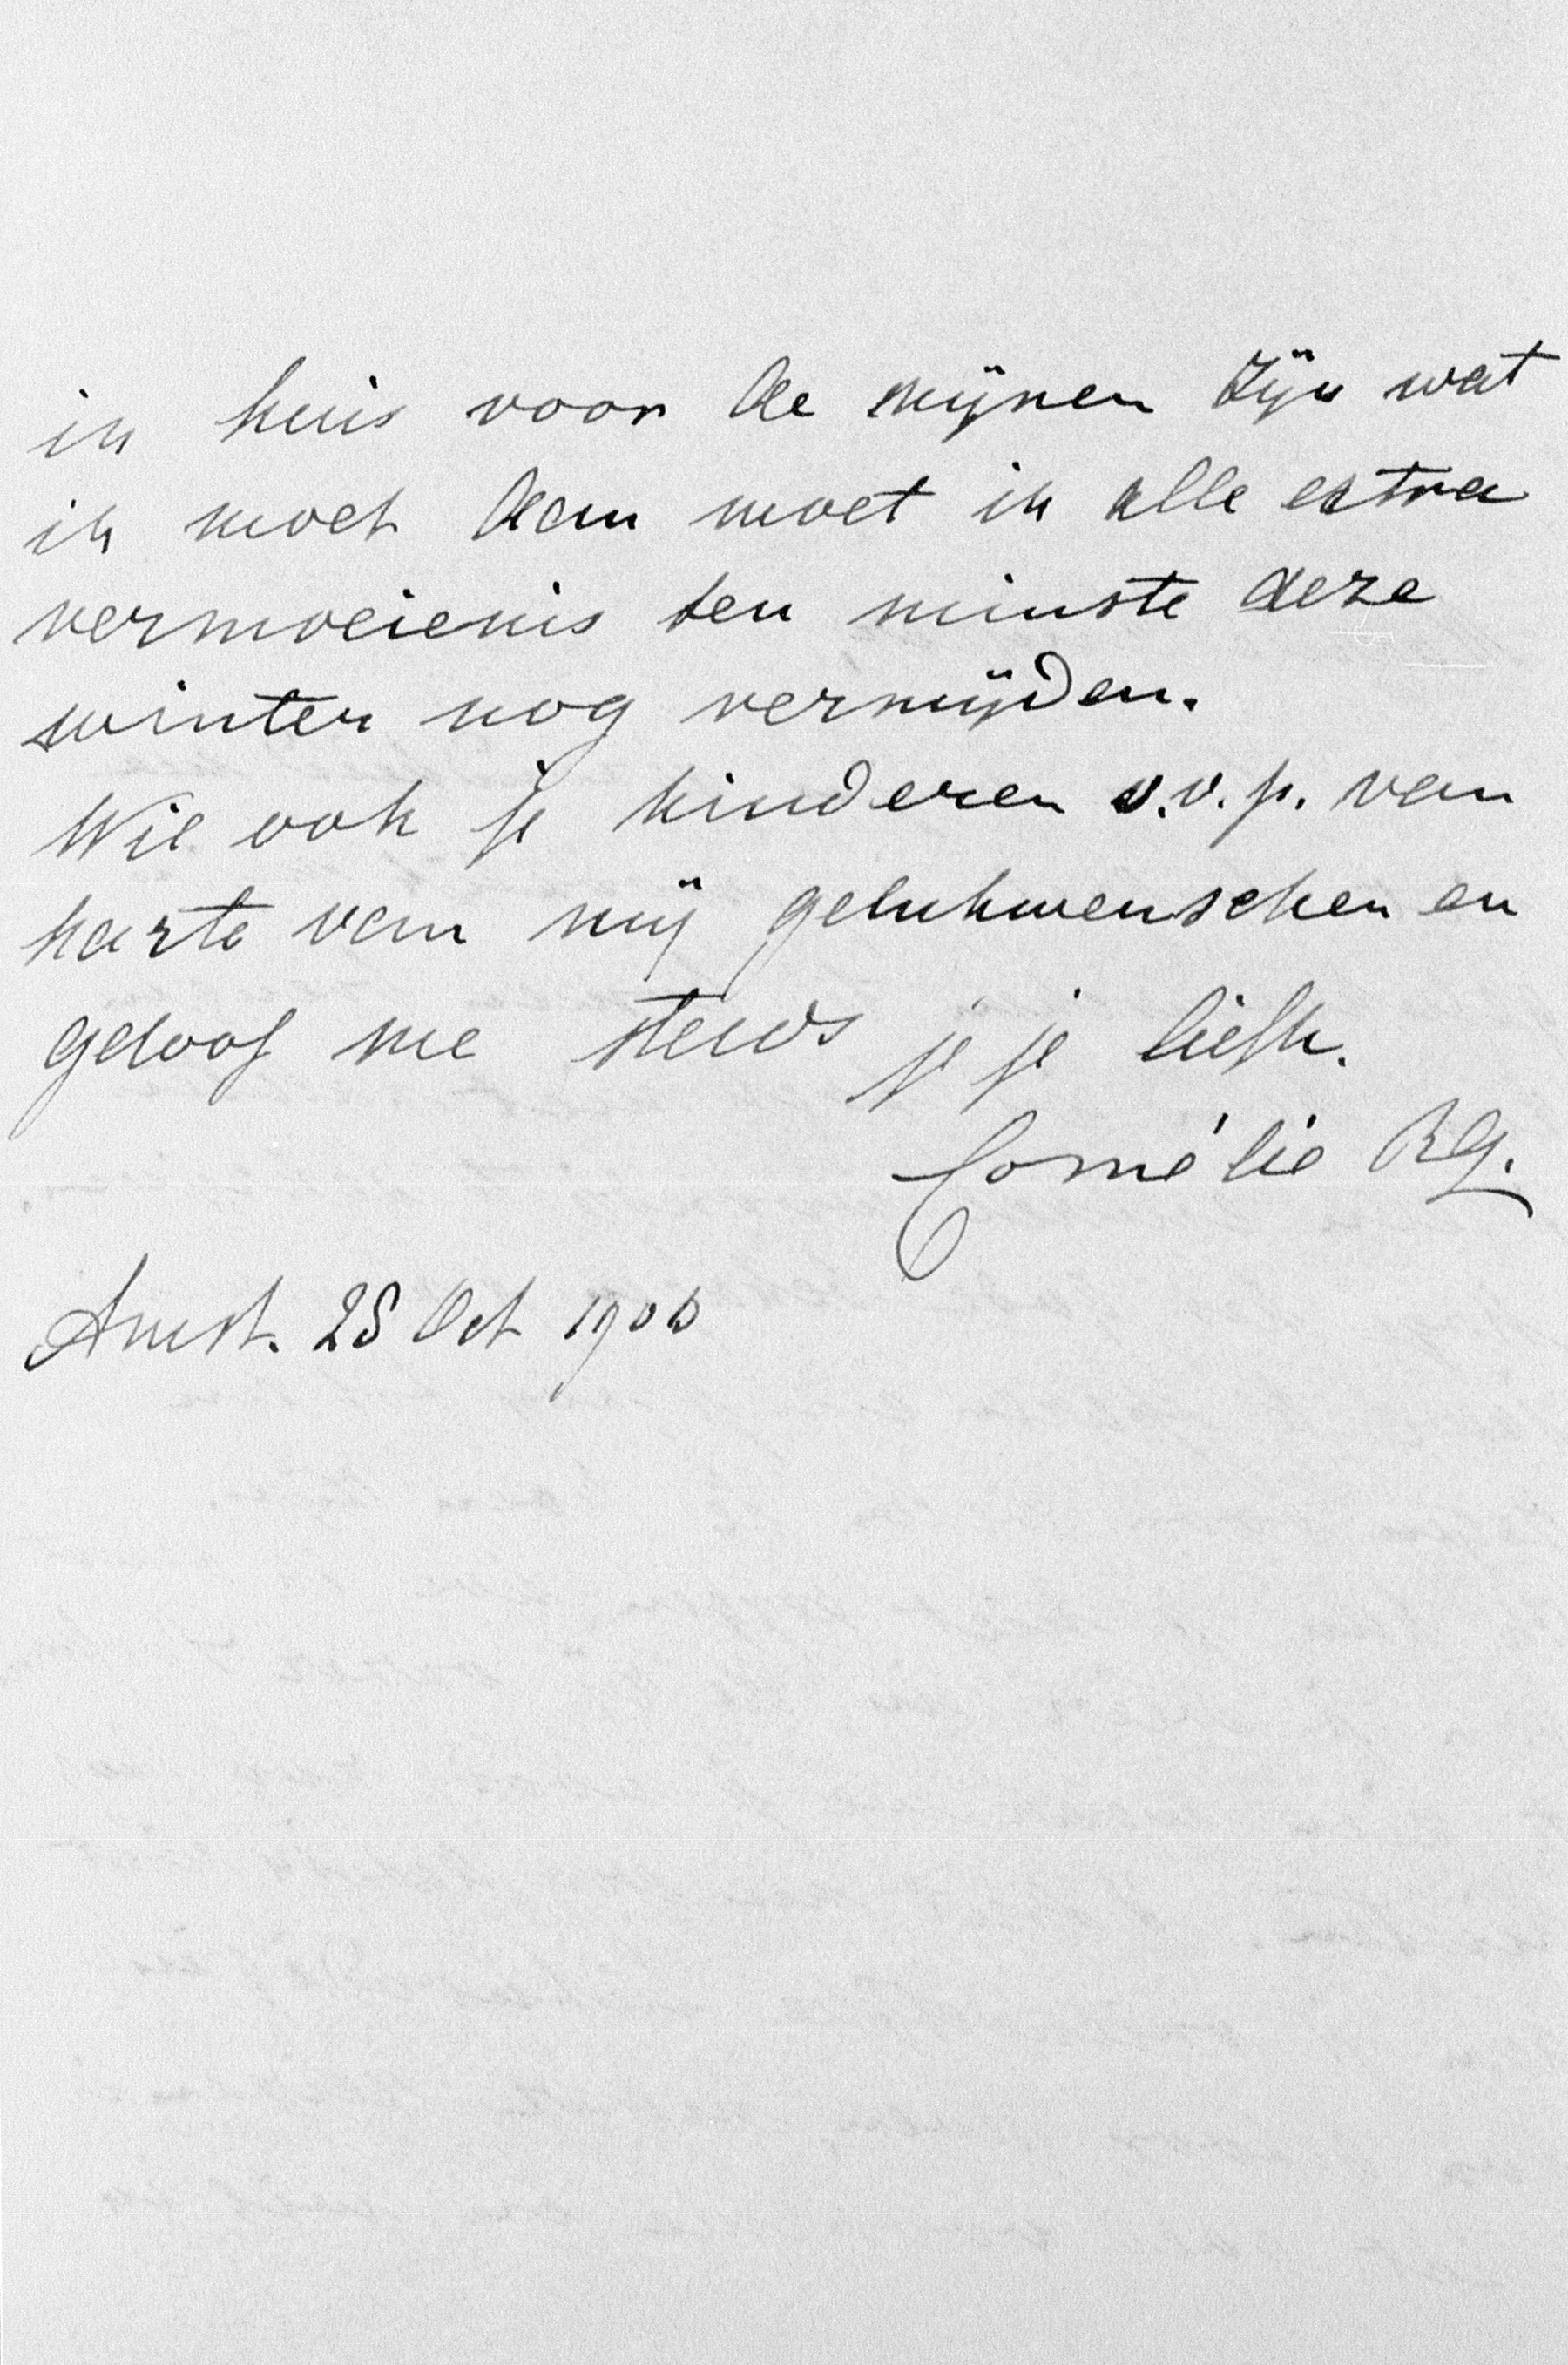 in huis voor de mijnen zijn wat
ik moet dan moet ik alle extra
vermoeienis ten minste deze
winter nog vermijden.
Wil ook je kinderen s.v.p. van
harte van mij gelukwenschen en
geloof me steeds je je liefh.
Cornélie RG.
Amst. 28 Oct